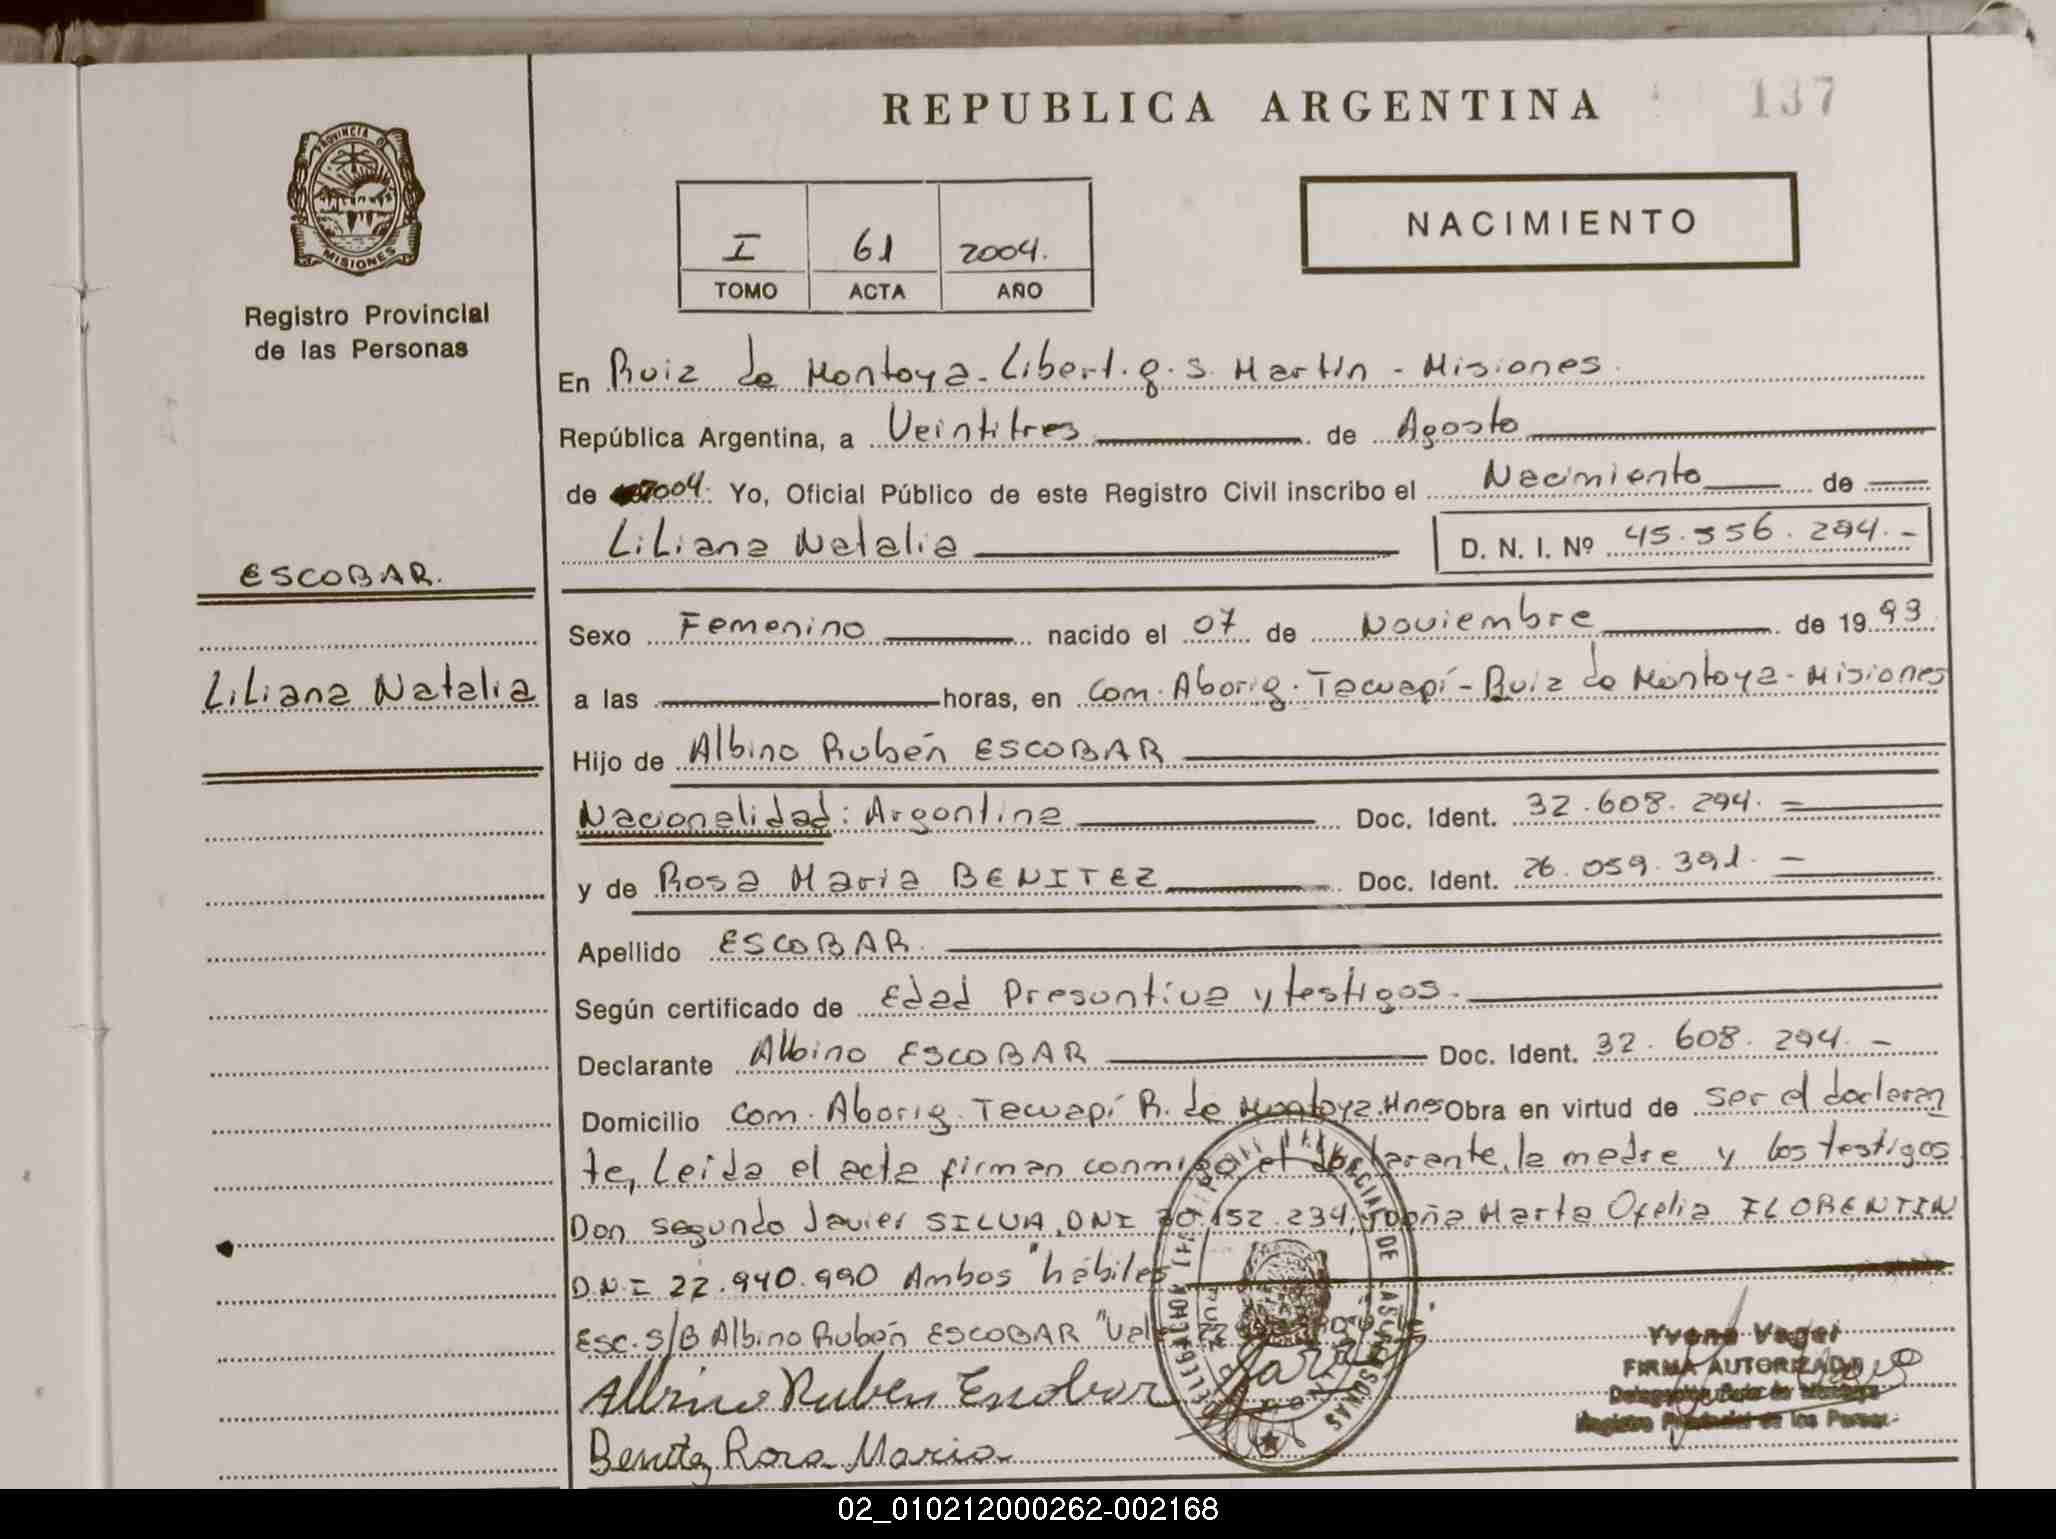 REPUBLICA ARGENTINA
137
PROVINCIA DE
MISIONES
Registro Provincial
de las Personas
NACIMIENTO
I 61 2004.
TOMO ACTA AÑO
En Ruiz de Montoya - Libert. g. S. Martín - Misiones.
República Argentina, a Veintitres de Agosto
de 2004. Yo, Oficial Público de este Registro Civil inscribo el Nacimiento de
Liliana Natalia
D. N. I. Nº 45.556.294.-
ESCOBAR.
Liliana Natalia
Sexo Femenino nacido el 07 de Noviembre de 1993
a las horas, en Com. Aborig. Tacuapí - Ruiz de Montoya - Misiones
Hijo de Albino Rubén ESCOBAR
Nacionalidad: Argentina Doc. Ident. 32.608.294. =
y de Rosa Maria BENITEZ Doc. Ident. 26.059.391. -
Apellido ESCOBAR.
Según certificado de Edad Presuntiva y testigos.
Declarante Albino ESCOBAR Doc. Ident. 32.608.294. -
Domicilio Com. Aborig. Tacuapí R. de Montoya. Mnes Obra en virtud de ser el declaran
te, Leida el acta firman conmigo el declarante, la madre y los testigos
Don Segundo Javier SILVA, DNI 30.152.234, y Doña Marta Ofelia FLORENTIN
D.N.I 22.940.990 Ambos "hábiles
Esc. S/B Albino Rubén ESCOBAR "Vale
Albino Ruben Escobar
Benitez Rosa Maria
FIRMA AUTORIZADA
Registro Provincial de las Person.
02_010212000262-002168